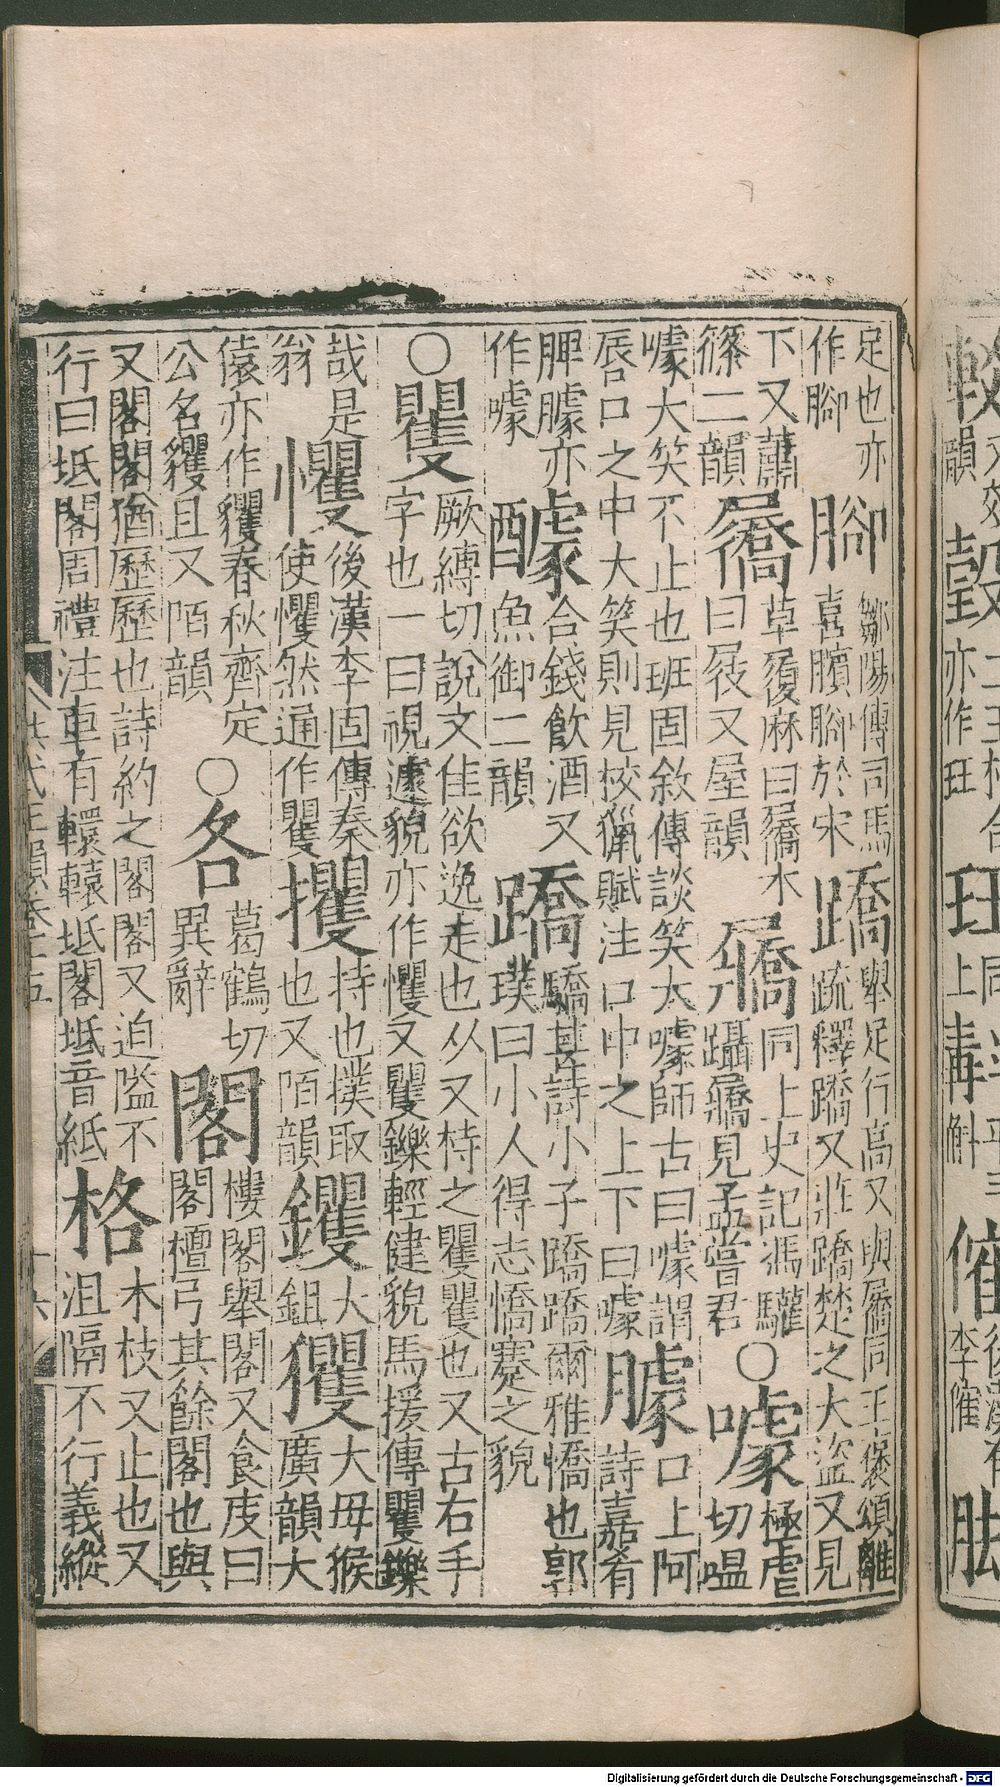 足也亦
作腳
腳
鄒陽傳司馬
喜臏腳於宋
蹻
舉足行高又與屩同王褒頌離
疏釋蹻又莊蹻楚之大盜又見
下又蕭
篠二韻
屩
草履麻曰屩木
曰屐又屋韻
屩
同上史記馮驩
躡屩見孟嘗君
○噱
極虐
切嗢
噱大笑不止也班固敘傳談笑大噱師古曰噱謂
唇口之中大笑則見挍獵賦注口中之上下曰噱
臄
口上阿
詩嘉肴
脾臄亦
作噱
醵
合錢飲酒又
魚御二韻
蹻
驕甚詩小子蹻蹻爾雅憍也郭
璞曰小人得志憍蹇之貌
○矍
厥縛切說文隹欲逸走也从又持之矍矍也又古右手
字也一曰視遽貌亦作戄又矍鑠輕健貌馬援傳矍鑠
哉是
翁
戄
後漢李固傳秦
使戄然通作矍
攫
持也撲取
也又陌韻
钁
大
鉏
玃
大母猴
廣韻大
猿亦作貜春秋齊定
公名貜且又陌韻
○各
葛鶴切
異辭
閣
樓閣舉閣又食庋曰
閣檀弓其餘閣也與
又閣閣猶歷歷也詩約之閣閣又迫隘不
行曰坻閣周禮注車有轘轅坻閣坻音紙
格
木枝又止也又
沮隔不行義縱
Digitalisierung gefördert durch die Deutsche Forschungsgemeinschaft - DFG